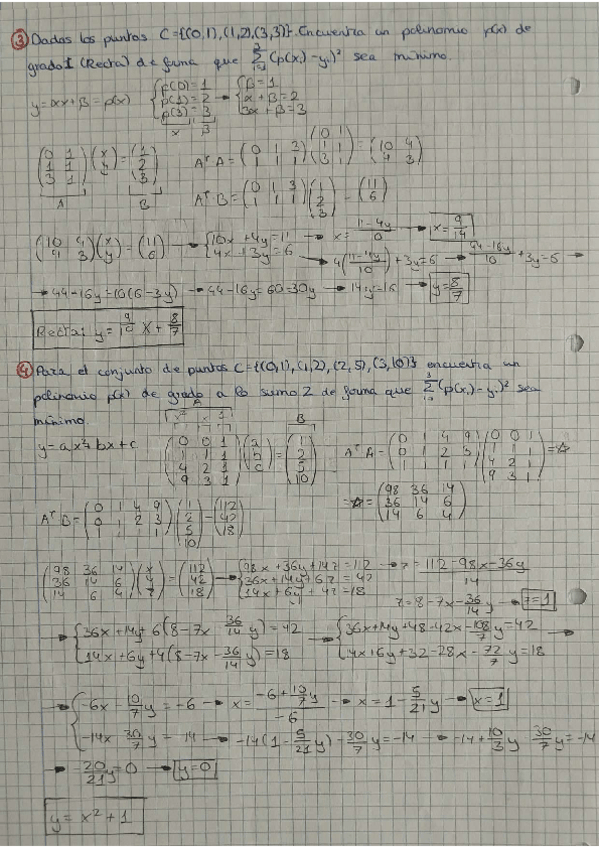 ③ Dados los puntos C={(0,1),(1,2),(3,3)}. Encuentra un polinomio p(x) de
grado 1 (Recta) de forma que Σ (p(xᵢ)-yᵢ)² sea mínimo.
y=αx+β=p(x) {p(0)=1 p(1)=2 p(3)=3 → {β=1 α+β=2 3α+β=3
(0 1; 1 1; 3 1)(x; y)=(1; 2; 3) AᵀA=(0 1 3; 1 1 1)(0 1; 1 1; 3 1)=(10 4; 4 3)
A B AᵀB=(0 1 3; 1 1 1)(1; 2; 3)=(11; 6)
(10 4; 4 3)(x; y)=(11; 6) → {10x+4y=11 4x+3y=6 → x=(11-4y)/10 → x=9/14
→ 4((11-4y)/10)+3y=6 → (44-16y)/10+3y=6 →
→ 44-16y=10(6-3y) → 44-16y=60-30y → 14y=16 → y=8/7
④ Para el conjunto de puntos C={(0,1),(1,2),(2,5),(3,10)} encuentra un
polinomio p(x) de grado a lo sumo 2 de forma que Σ (p(xᵢ)-yᵢ)² sea
mínimo.
y=ax²+bx+c (0 0 1; 1 1 1; 4 2 1; 9 3 1)(a; b; c)=(1; 2; 5; 10) AᵀA=(0 1 4 9; 0 1 2 3; 1 1 1 1)(0 0 1; 1 1 1; 4 2 1; 9 3 1)=☆
☆=(98 36 14; 36 14 6; 14 6 4)
AᵀB=(0 1 4 9; 0 1 2 3; 1 1 1 1)(1; 2; 5; 10)=(112; 42; 18)
(98 36 14; 36 14 6; 14 6 4)(x; y; z)=(112; 42; 18) → {98x+36y+14z=112 36x+14y+6z=42 14x+6y+4z=18 → z=(112-98x-36y)/14
z=8-7x-36/14y → z=1
→ {36x+14y+6(8-7x-36/14y)=42 14x+6y+4(8-7x-36/14y)=18 → {36x+14y+48-42x-108/7y=42 14x+6y+32-28x-72/7y=18
→ {-6x-10/7y=-6 → x=(-6+10/7y)/-6 → x=1-5/21y → x=1
-14x-30/7y=-14 → -14(1-5/21y)-30/7y=-14 → -14+10/3y-30/7y=-14
→ -20/21y=0 → y=0
y=x²+1